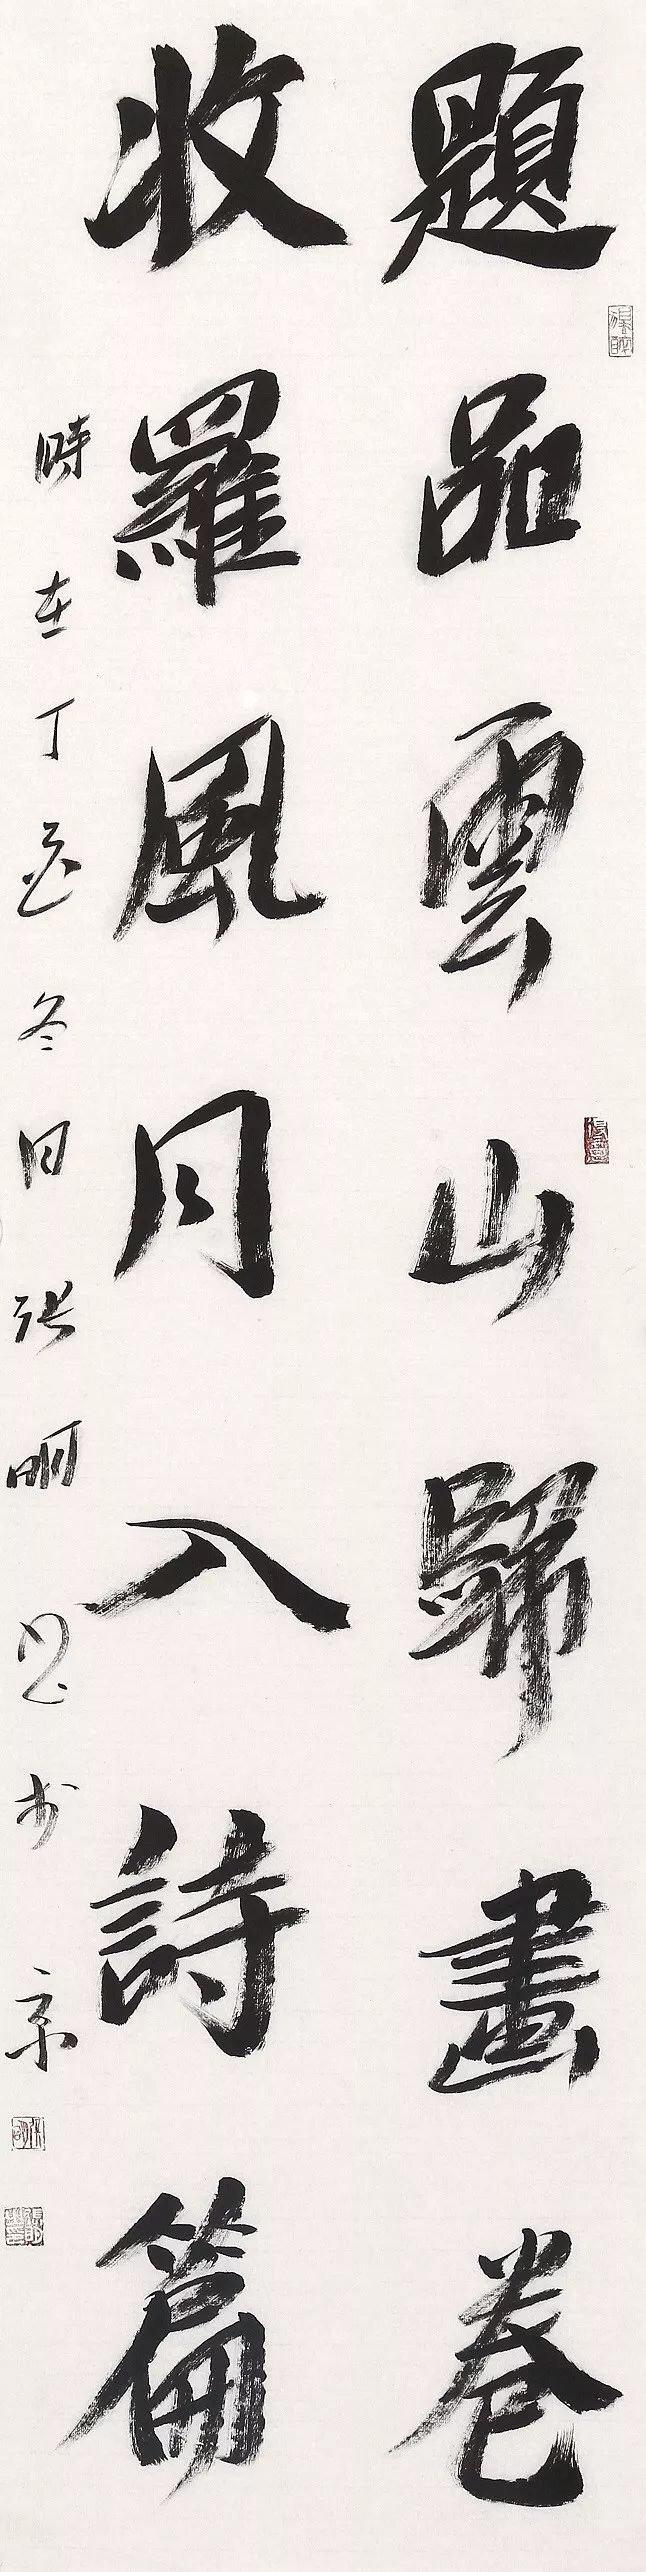 題品雲山歸畫卷
收羅風月入詩篇
時在丁酉冬日張明明書於京